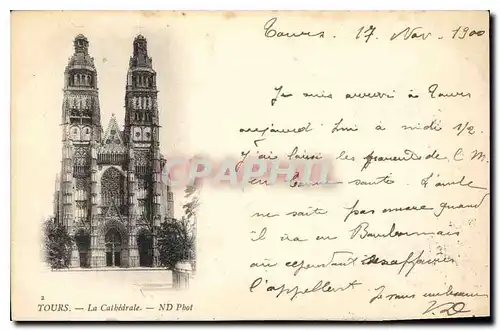 Tours. 17 Nov. 1900
Je suis arrivé à Tours
aujourd'hui à midi 1/2
j'ai laissé les parents de C. M.
en bonne santé.
ne sait pas encore quand
il ira en Bourbonnais
où cependant ses affaires
l'appellent Je suis
CPAPHIL
2
TOURS. — La Cathédrale. — ND Phot